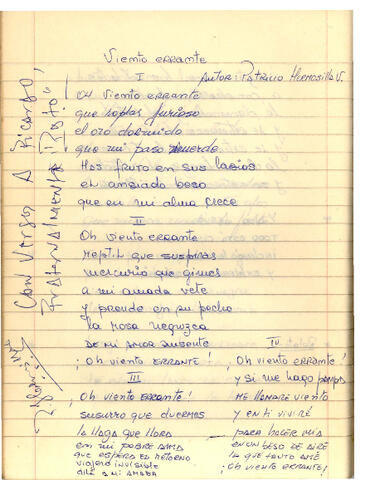 Viento errante
I Autor: Patricio Hermosilla V.
Oh viento errante
que soplas furioso
el oro dormido
que mi paso
Haz fruto en sus labios
el ansiado beso
que en mi alma crece
II
Oh viento errante
reptil que suspiras
mercurio que gimes
a mi amada vete
y prende en su pecho
la rosa negruzca
de mi amor ausente
¡Oh viento errante!
III
¡Oh viento errante!
susurro que duermes
la llaga que llora
en mi pobre alma
que espera el retorno
viajero invisible
dile a mi amada
IV
¡Oh viento errante!
y si me hago pampa
me llenaré viento
y en ti viviré
para hacer mía
en un beso de aire
la que tanto amé
¡Oh viento errante!
Con versos a Ricardo,
Fraternalmente "Pato"